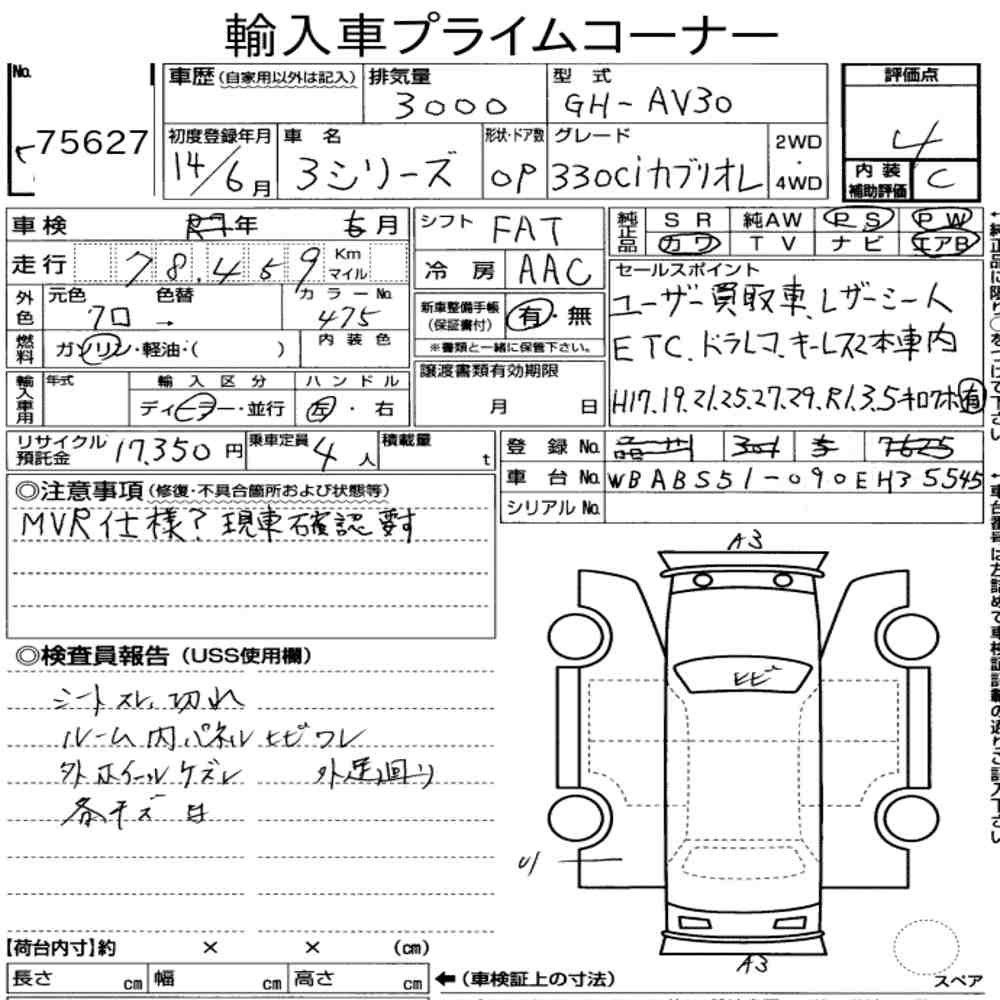 輸入車プライムコーナー
No. 75627
車歴 (自家用以外は記入)
排気量 3000
型式 GH-AV30
評価点 4
初度登録年月 14/6月
車名 3シリーズ
形状・ドア数 OP
グレード 330Ciカブリオレ
2WD・4WD
内装補助評価 C
車検 R7年 6月
シフト FAT
純正品 SR 純AW PS PW
カワ TV ナビ エアB
走行 78,459 Km マイル
冷房 AAC
セールスポイント
ユーザー買取車、レザーシート
ETC、ドラレコ、キーレス2本車内
H17.19.21.25.27.29.R1.3.5キロクボ有
外色 元色 クロ → 色替 カラーNo. 475
新車整備手帳(保証書付) 有・無
※書類と一緒に保管下さい。
燃料 ガソリン・軽油・( ) 内装色
譲渡書類有効期限
月 日
輸入車用 年式 輸入区分 ハンドル
ディーラー・並行 左・右
リサイクル預託金 17,350円
乗車定員 4人
積載量 t
登録No.
車台No. WBABS51-090EH35545
シリアルNo.
◎注意事項 (修復・不具合箇所および状態等)
MVR仕様? 現車確認要す
◎検査員報告 (USS使用欄)
シートスレ、切れ
ルーム内パネルヒビワレ
外ホイールケズレ 外足廻り
各キズ
A3
ヒビ
U1
A3
スペア
【荷台内寸】約 × × (cm)
長さ cm 幅 cm 高さ cm
←(車検証上の寸法)